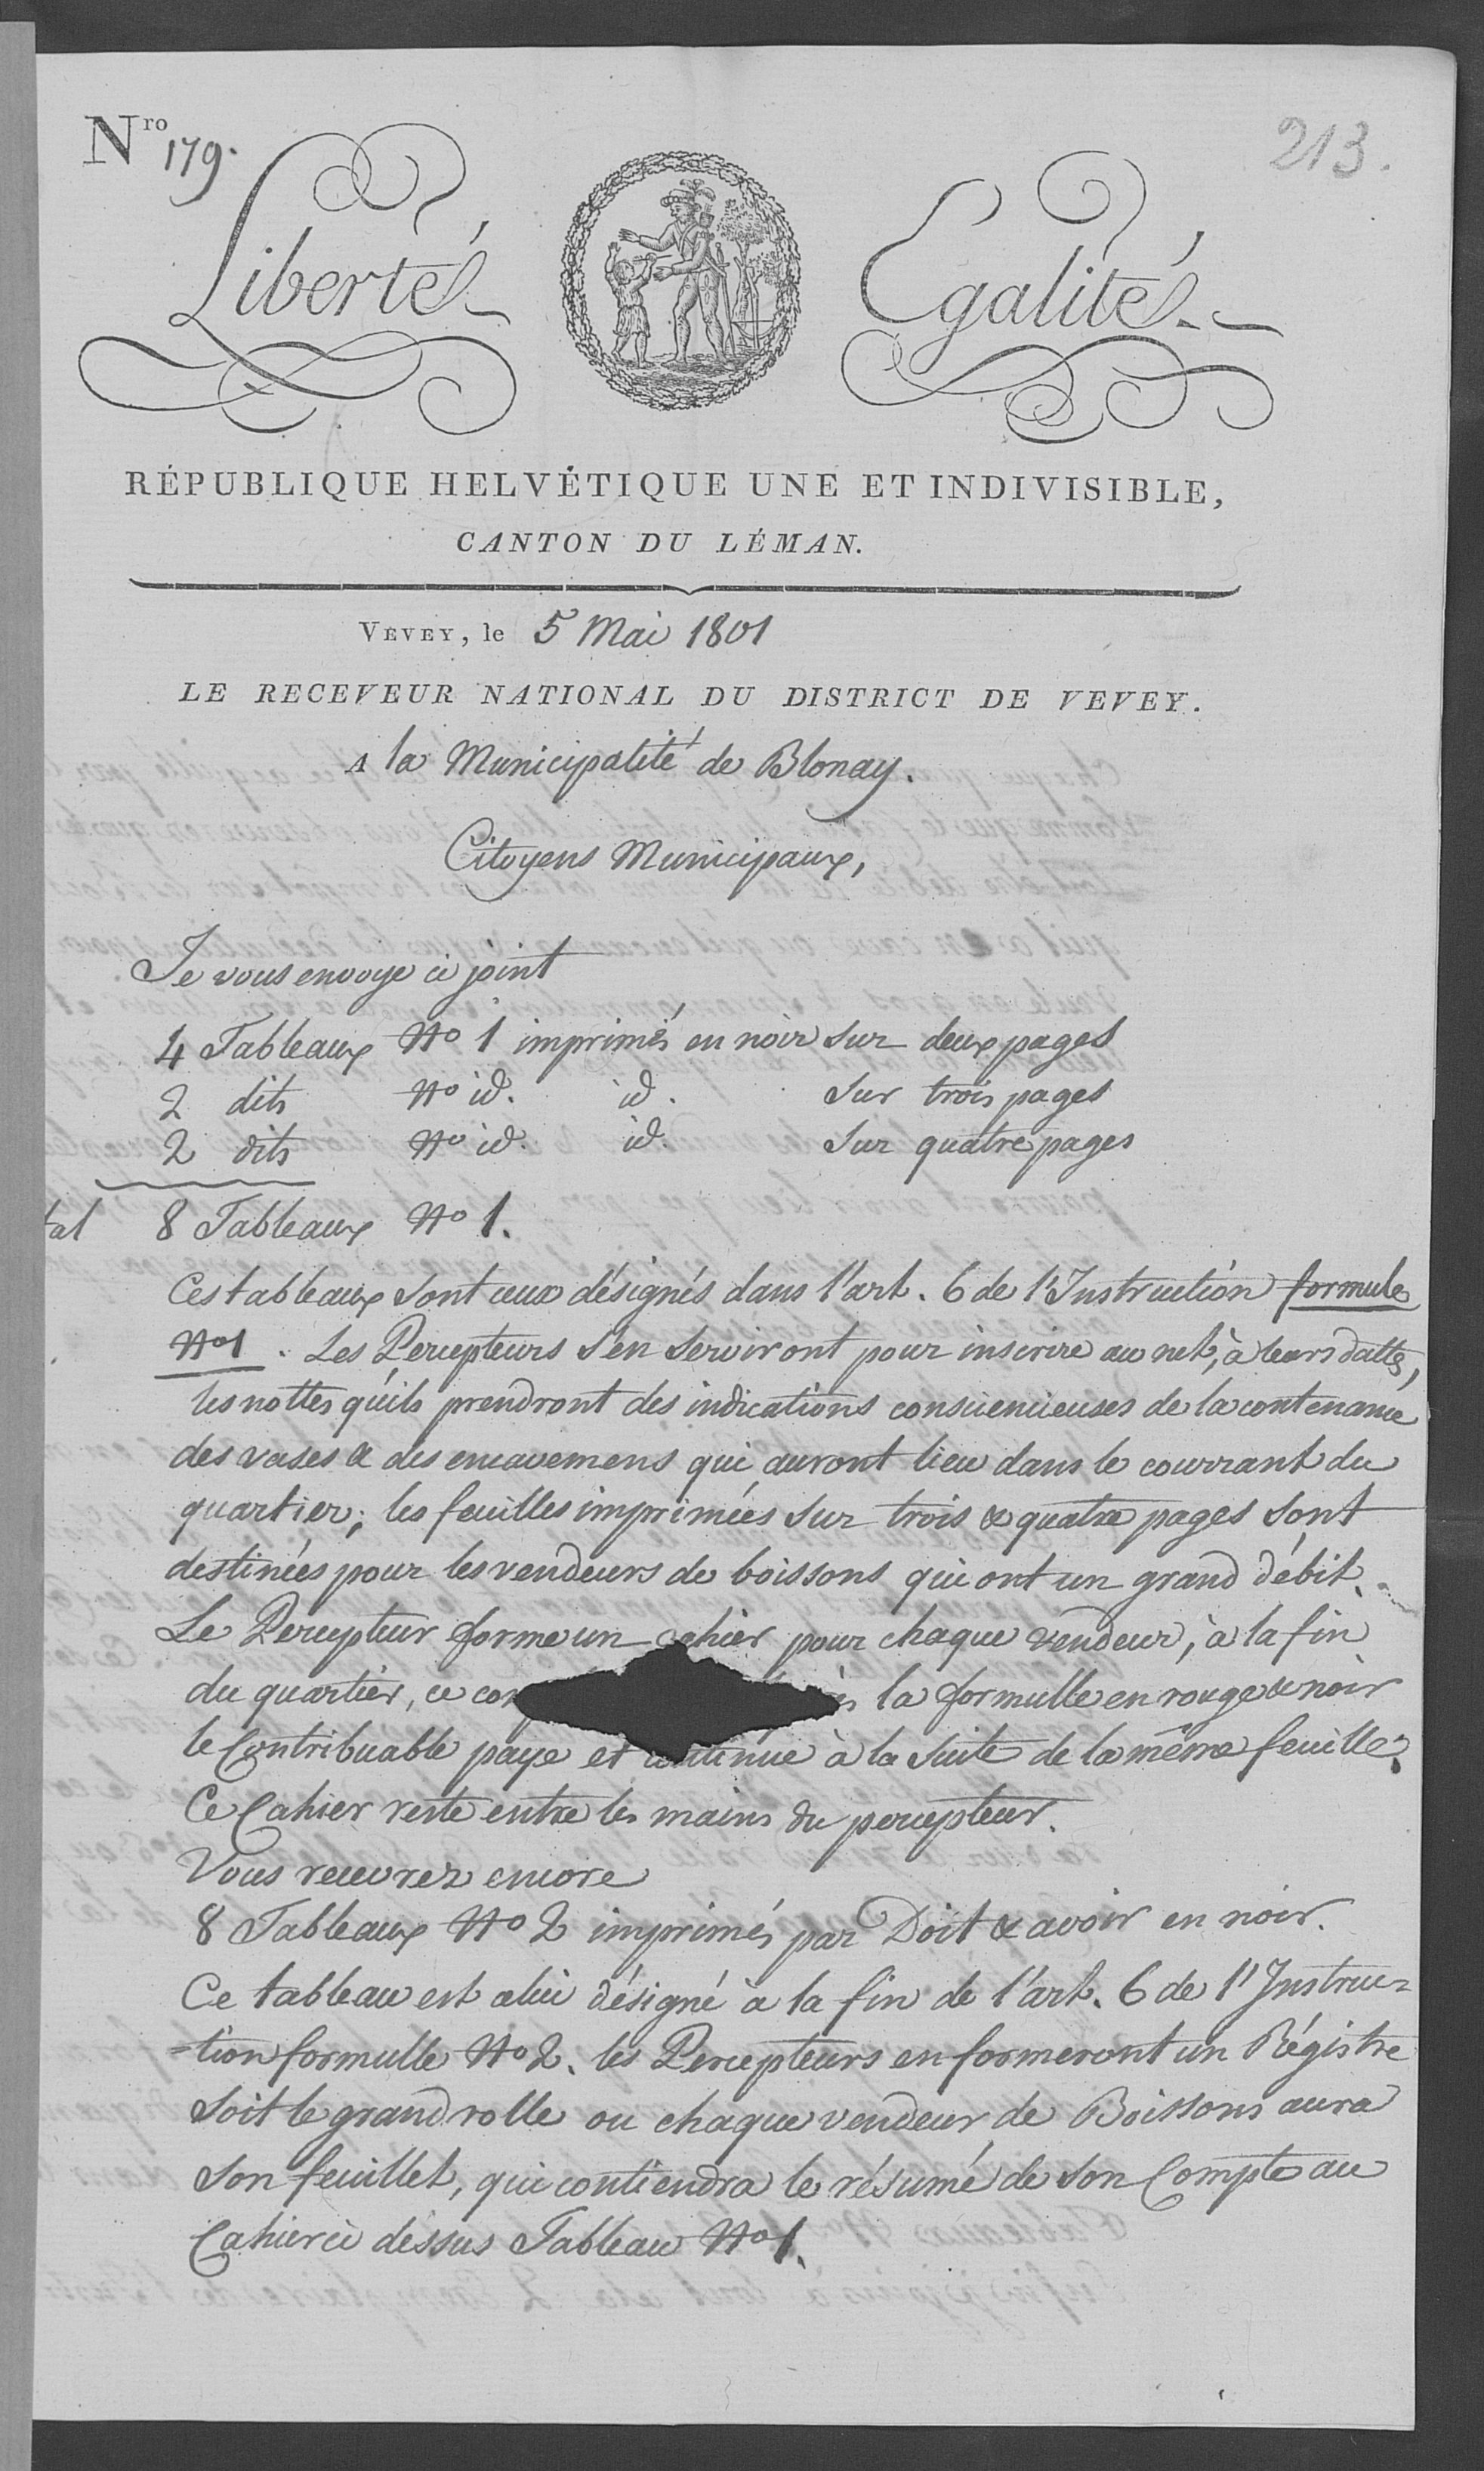 Nro 179.
213.
Liberté
Egalité
RÉPUBLIQUE HELVÉTIQUE UNE ET INDIVISIBLE,
CANTON DU LÉMAN.
VEVEY, le 5 Mai 1801
LE RECEVEUR NATIONAL DU DISTRICT DE VEVEY.
A la Municipalité de Blonay.
Citoyens Municipaux,
Je vous envoye ci joint
4 Tableaux No 1 imprimés en noir sur deux pages
2 dits No id. id. sur trois pages
2 dits No id. id. sur quatre pages
tal 8 Tableaux No 1.
Ces tableaux sont ceux désignés dans l'art. 6 de l'Instruction formule
No 1. Les Percepteurs s'en serviront pour inscrire au net, à leurs dattes,
les nottes qu'ils prendront des indications consciencieuses de la contenance
des vases & des encavemens qui auront lieu dans le courrant du
quartier; les feuilles imprimées sur trois & quatre pages sont
destinées pour les vendeurs de boissons qui ont un grand débit.
Le Percepteur forme un cahier pour chaque vendeur, à la fin
du quartier, ce la formulle en rouge & noir
le Contribuable paye et continue à la suite de la même feuille.
Ce Cahier reste entre les mains du percepteur.
Vous recevrez encore
8 Tableaux No 2 imprimés par Doit & avoir en noir.
Ce tableau est celui désigné à la fin de l'art. 6 de l'Instruc=
=tion formulle No 2. les Percepteurs en formeront un Régistre
soit le grand rolle ou chaque vendeur de Boissons aura
son feuillet, qui contiendra le résumé de son Compte au
Cahier ci dessus Tableau No 1.